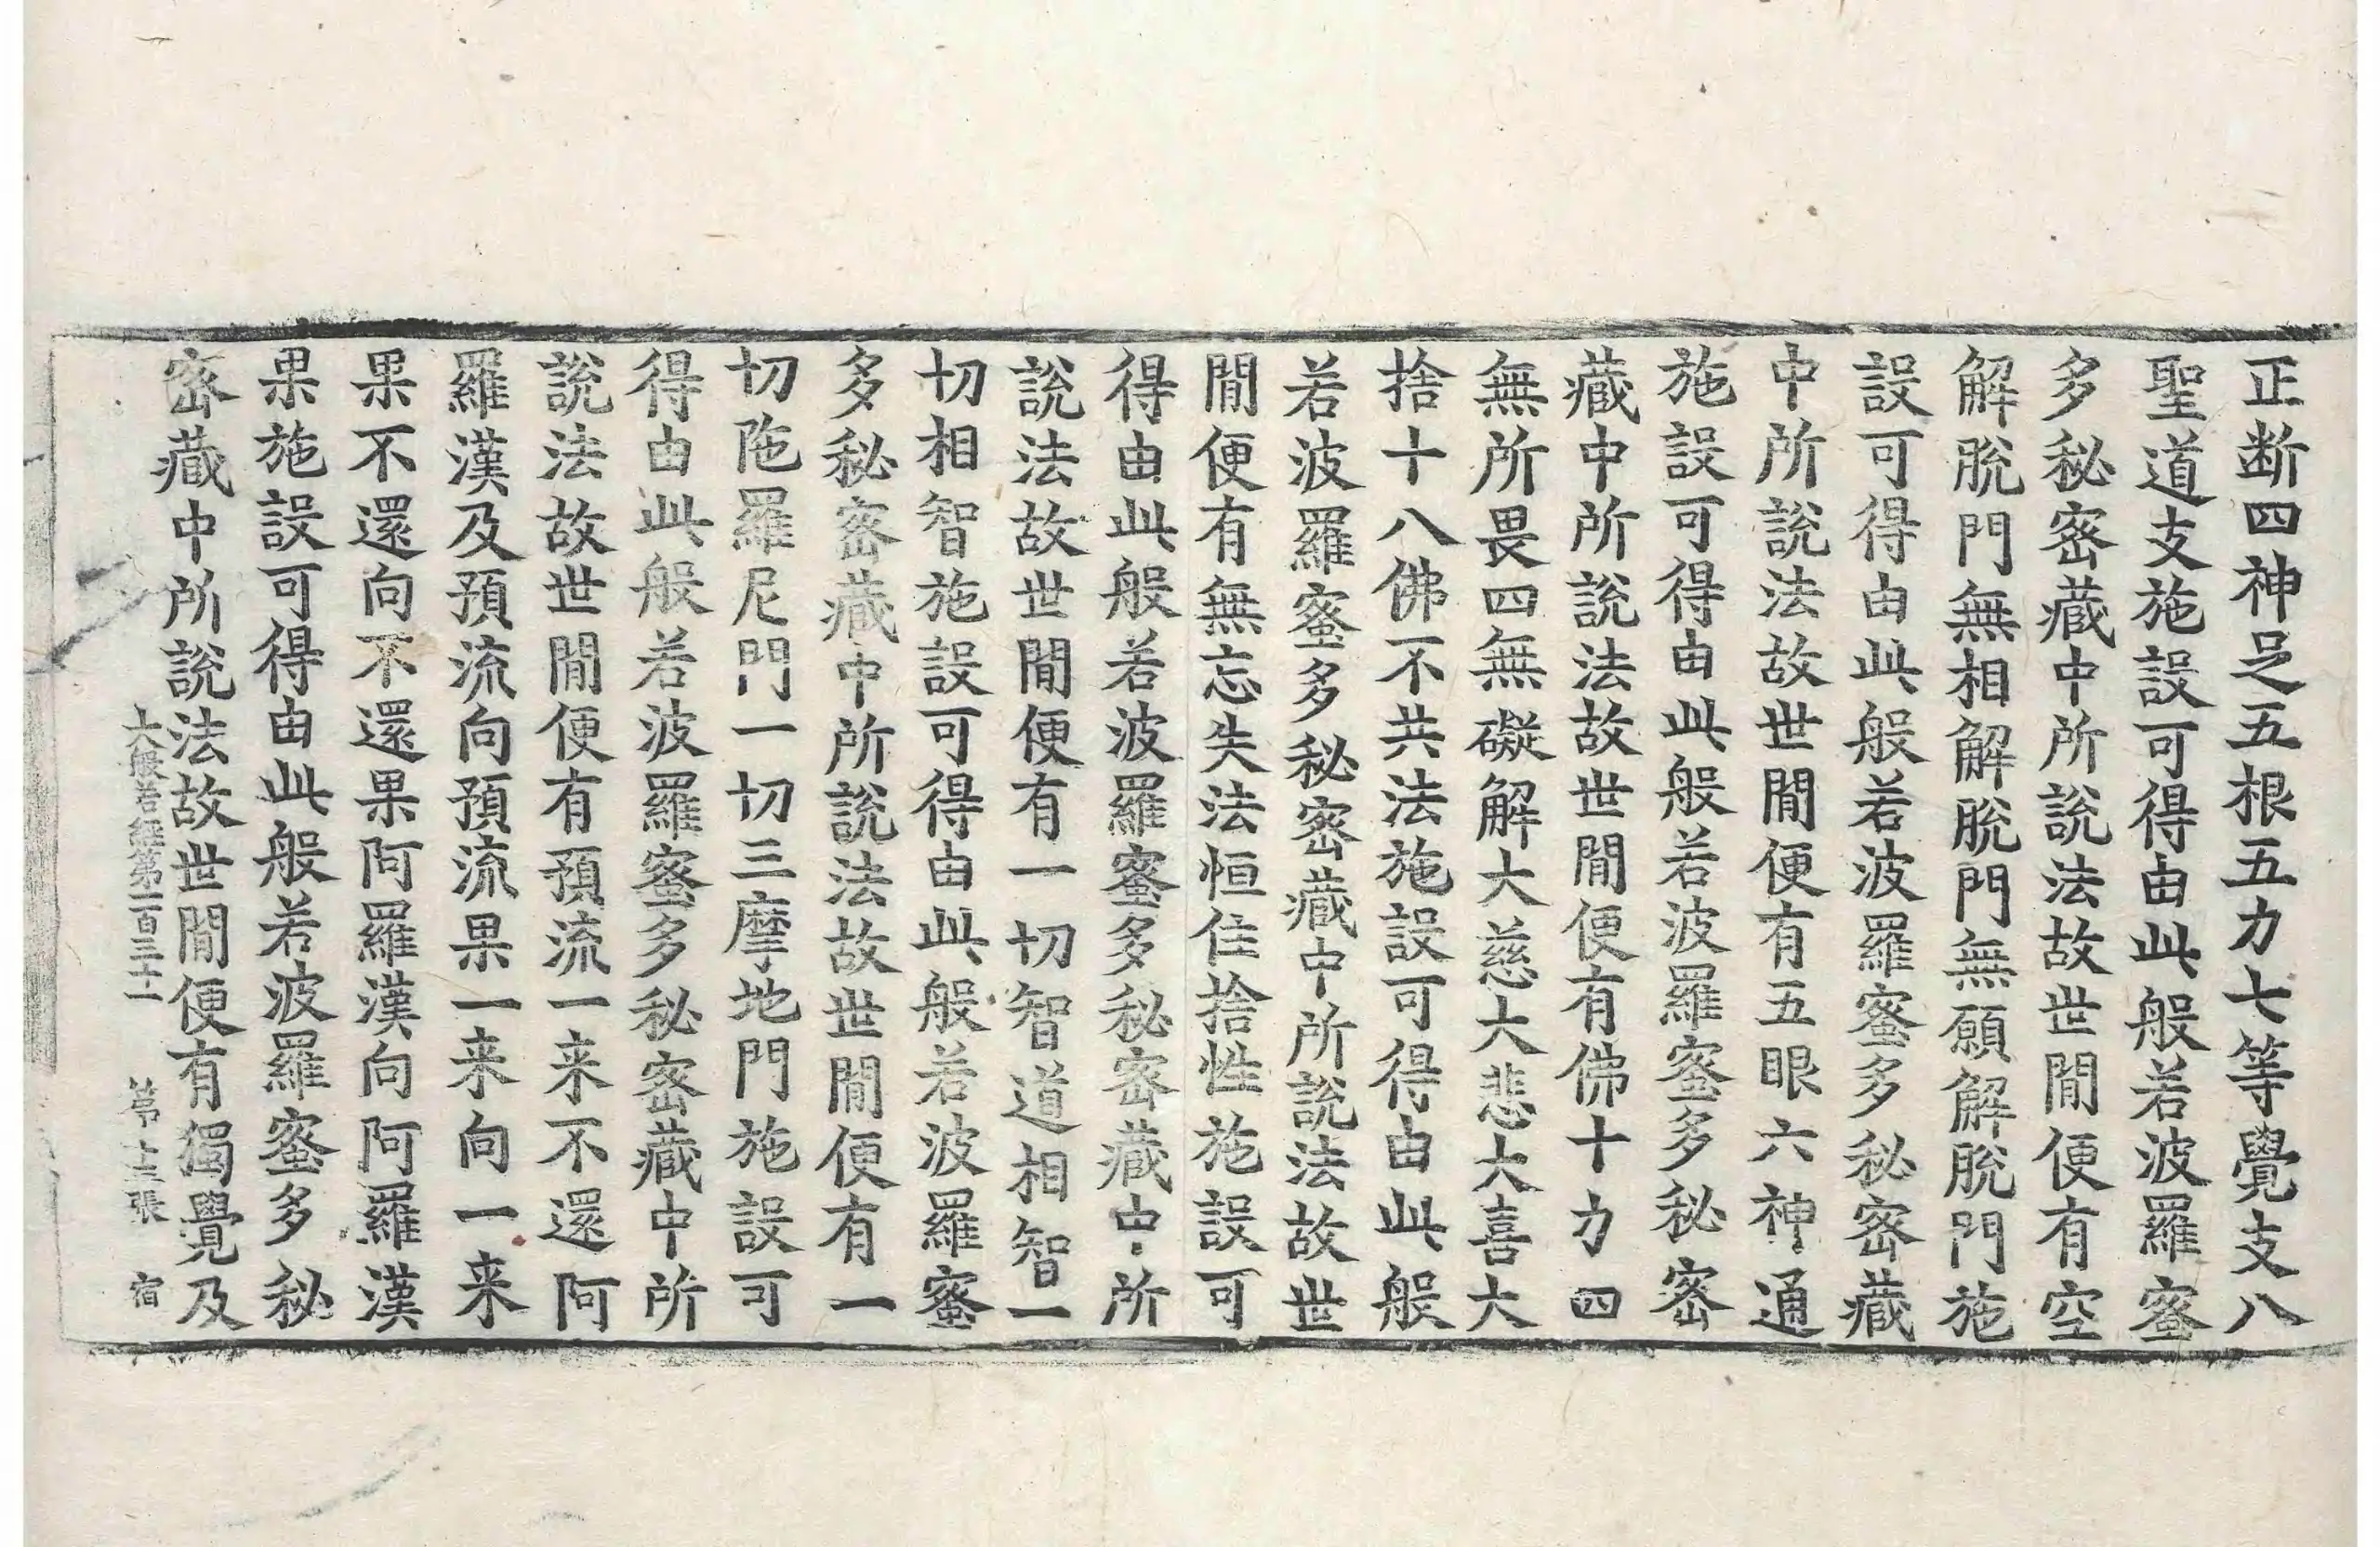 正断四神足五根五力七等覺支八
聖道支施設可得由此般若波羅蜜
多秘密藏中所說法故世間便有空
解脫門無相解脫門無願解脫門施
設可得由此般若波羅蜜多秘密藏
中所說法故世間便有五眼六神通
施設可得由此般若波羅蜜多秘密
藏中所說法故世間便有佛十力四
無所畏四無礙解大慈大悲大喜大
捨十八佛不共法施設可得由此般
若波羅蜜多秘密藏中所說法故世
間便有無忘失法恒住捨性施設可
得由此般若波羅蜜多秘密藏中所
說法故世間便有一切智道相智一
切相智施設可得由此般若波羅蜜
多秘密藏中所說法故世間便有一
切陁羅尼門一切三摩地門施設可
得由此般若波羅蜜多秘密藏中所
說法故世間便有預流一来不還阿
羅漢及預流向預流果一来向一来
果不還向不還果阿羅漢向阿羅漢
果施設可得由此般若波羅蜜多秘
密藏中所說法故世間便有獨覺及
大般若經第一百三十一 第十三張 宿